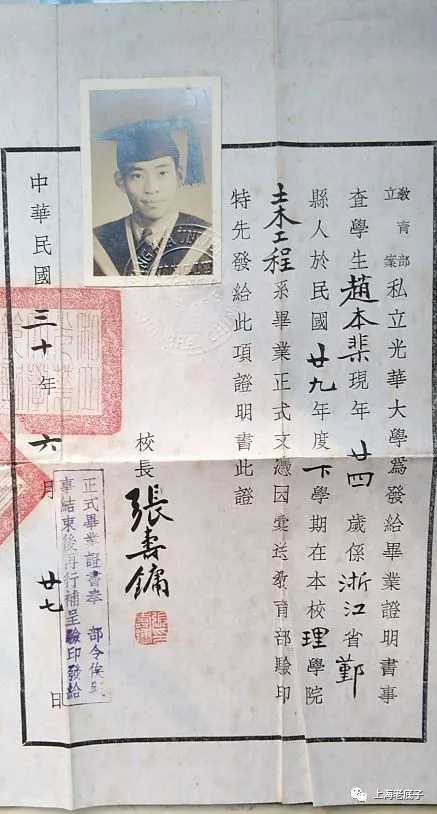 教育部立案私立光華大學爲發給畢業證明書事
查學生趙本棐現年廿四歲係浙江省鄞
縣人於民國廿九年度下學期在本校理學院
土木工程系畢業正式文憑因彙送教育部驗印
特先發給此項證明書此證
校長張壽鏞
正式畢業證書奉 部令俟戰
事結束後再行補呈驗印發給
中華民國三十年六月廿七日
上海老底子